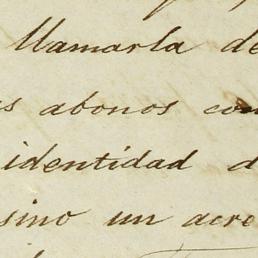 llamarla de
s abonos con
identidad d
sino un acre